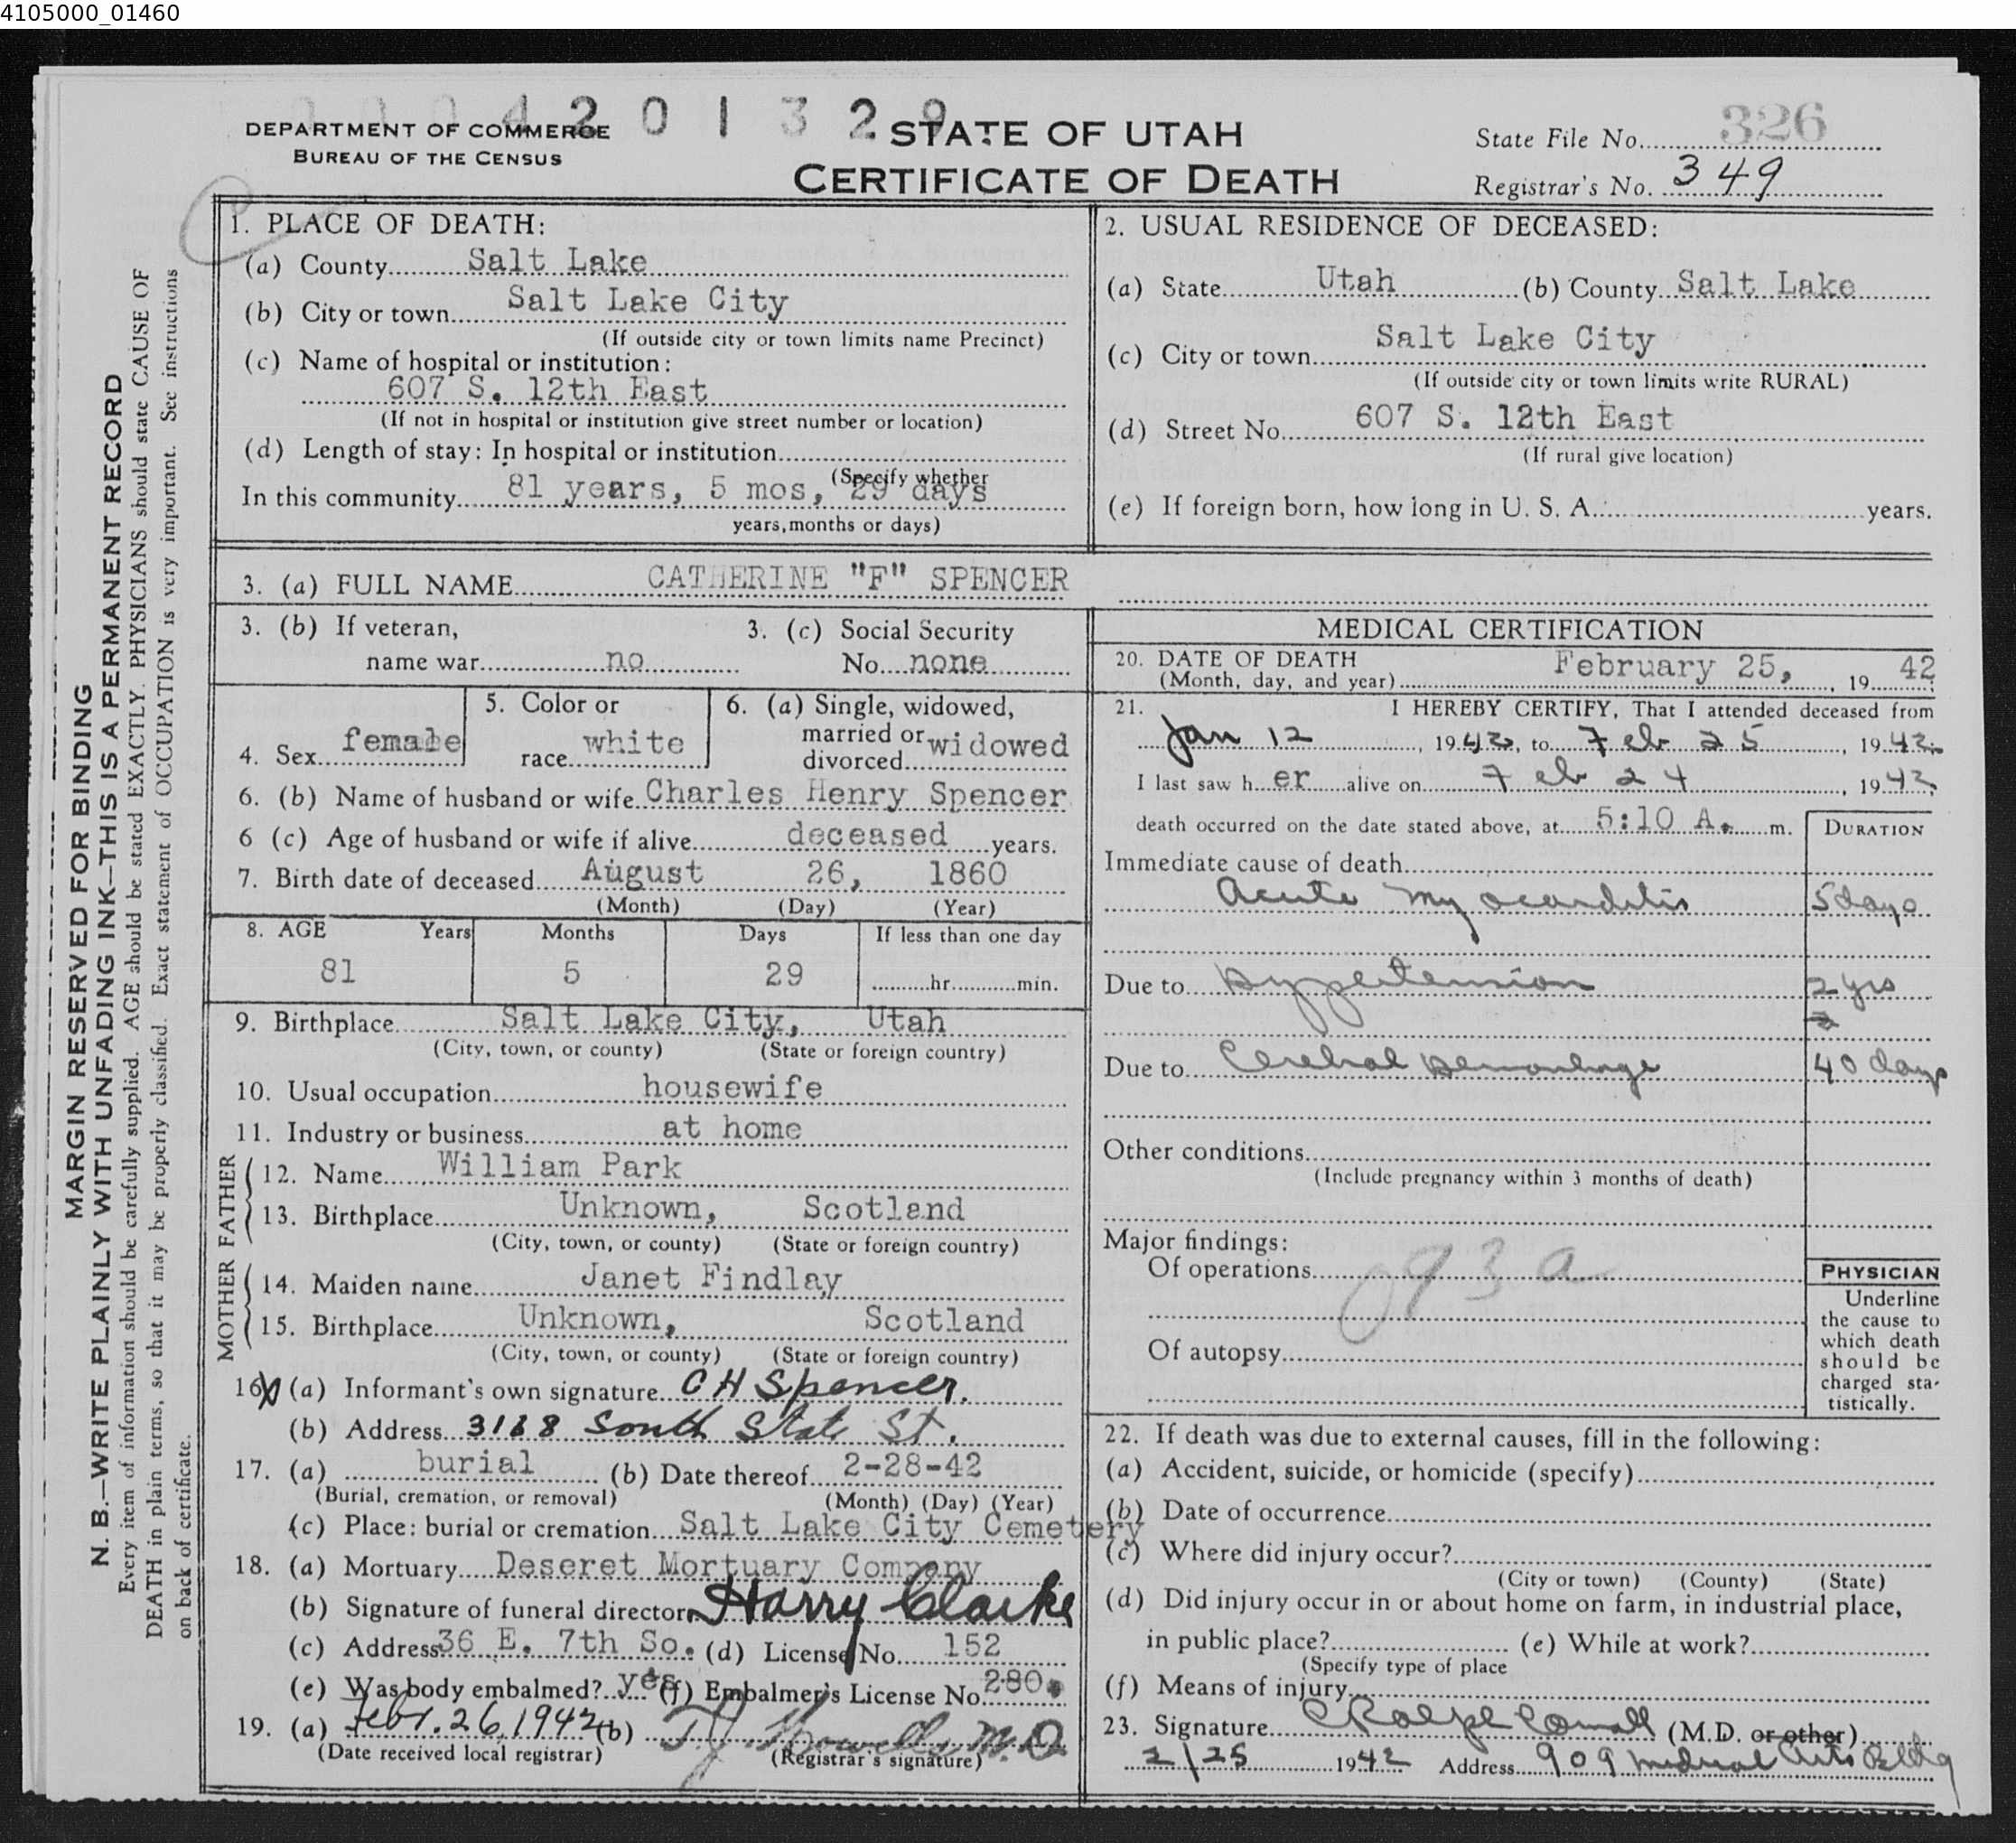 4105000_01460
000420 1 3 2 9
DEPARTMENT OF COMMERCE
BUREAU OF THE CENSUS
STATE OF UTAH
CERTIFICATE OF DEATH
State File No. 326
Registrar's No. 349
MARGIN RESERVED FOR BINDING
N. B.—WRITE PLAINLY WITH UNFADING INK—THIS IS A PERMANENT RECORD
Every item of information should be carefully supplied. AGE should be stated EXACTLY. PHYSICIANS should state CAUSE OF
DEATH in plain terms, so that it may be properly classified. Exact statement of OCCUPATION is very important. See instructions
on back of certificate.
1. PLACE OF DEATH:
(a) County Salt Lake
(b) City or town Salt Lake City
(If outside city or town limits name Precinct)
(c) Name of hospital or institution:
607 S. 12th East
(If not in hospital or institution give street number or location)
(d) Length of stay: In hospital or institution
(Specify whether
In this community 81 years, 5 mos, 29 days
years, months or days)
2. USUAL RESIDENCE OF DECEASED:
(a) State Utah (b) County Salt Lake
(c) City or town Salt Lake City
(If outside city or town limits write RURAL)
(d) Street No. 607 S. 12th East
(If rural give location)
(e) If foreign born, how long in U. S. A. years.
3. (a) FULL NAME CATHERINE "F" SPENCER
3. (b) If veteran,
name war no
3. (c) Social Security
No. none
4. Sex female
5. Color or
race white
6. (a) Single, widowed,
married or
divorced widowed
6. (b) Name of husband or wife Charles Henry Spencer
6 (c) Age of husband or wife if alive deceased years.
7. Birth date of deceased August 26, 1860
(Month) (Day) (Year)
8. AGE Years Months Days If less than one day
81 5 29 hr. min.
9. Birthplace Salt Lake City, Utah
(City, town, or county) (State or foreign country)
10. Usual occupation housewife
11. Industry or business at home
FATHER
12. Name William Park
13. Birthplace Unknown, Scotland
(City, town, or county) (State or foreign country)
MOTHER
14. Maiden name Janet Findlay
15. Birthplace Unknown, Scotland
(City, town, or county) (State or foreign country)
16. (a) Informant's own signature C H Spencer.
(b) Address 3168 South State St.
17. (a) burial (b) Date thereof 2-28-42
(Burial, cremation, or removal) (Month) (Day) (Year)
(c) Place: burial or cremation Salt Lake City Cemetery
18. (a) Mortuary Deseret Mortuary Company
(b) Signature of funeral director Harry Clarke
(c) Address 36 E. 7th So. (d) License No. 152
(e) Was body embalmed? yes (f) Embalmer's License No. 280.
19. (a) Febr. 26, 1942 (b) M.D.
(Date received local registrar) (Registrar's signature)
MEDICAL CERTIFICATION
20. DATE OF DEATH
(Month, day, and year) February 25, 19 42
21. I HEREBY CERTIFY, That I attended deceased from
Jan 12, 19 42, to Feb 25, 19 42.
I last saw h er alive on Feb 24, 19 42,
death occurred on the date stated above, at 5:10 A. m.
DURATION
Immediate cause of death
Acute Myocarditis 5 days
Due to Hypertension 2 yrs
Due to Cerebral Hemorrhage 40 days
Other conditions
(Include pregnancy within 3 months of death)
Major findings:
Of operations
093a
Of autopsy
PHYSICIAN
Underline
the cause to
which death
should be
charged sta-
tistically.
22. If death was due to external causes, fill in the following:
(a) Accident, suicide, or homicide (specify)
(b) Date of occurrence
(c) Where did injury occur?
(City or town) (County) (State)
(d) Did injury occur in or about home on farm, in industrial place,
in public place? (e) While at work?
(Specify type of place
(f) Means of injury
23. Signature (M.D. or other)
2/25 1942 Address 909 Medical Arts Bldg